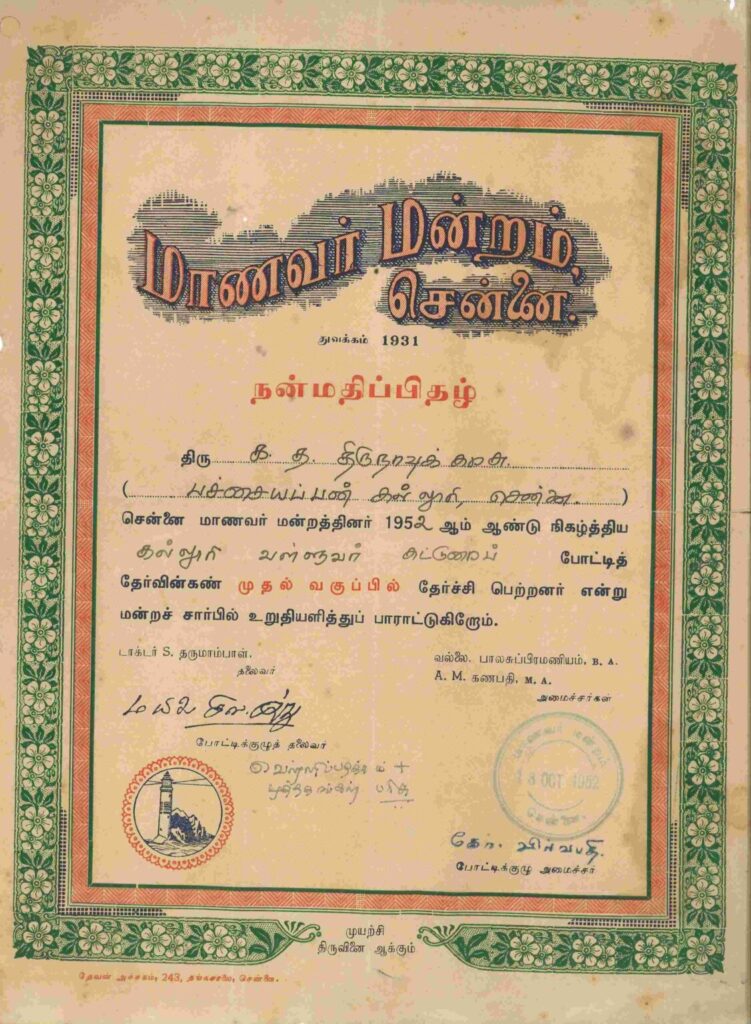 மாணவர் மன்றம்,
சென்னை.
துவக்கம் 1931
நன்மதிப்பிதழ்
திரு க. த. திருநாவுக்கரசு.
( பச்சையப்பன் கல்லூரி, சென்னை. )
சென்னை மாணவர் மன்றத்தினர் 1952 ஆம் ஆண்டு நிகழ்த்திய
கல்லூரி வள்ளுவர் கட்டுரைப் போட்டித்
தேர்வின்கண் முதல் வகுப்பில் தேர்ச்சி பெற்றனர் என்று
மன்றச் சார்பில் உறுதியளித்துப் பாராட்டுகிறோம்.
டாக்டர் S. தருமாம்பாள்.
தலைவர்
வல்லை. பாலசுப்பிரமணியம், B. A.
A. M. கணபதி, M. A.
அமைச்சர்கள்
போட்டிக்குழுத் தலைவர்
வெள்ளிப்பதக்கம் +
புத்தகங்கள் பரிசு
மாணவர் மன்றம்
18 OCT 1952
சென்னை.
கோ. வில்வபதி.
போட்டிக்குழு அமைச்சர்
முயற்சி
திருவினை ஆக்கும்
தேவன் அச்சகம், 243, தங்கசாலை, சென்னை.